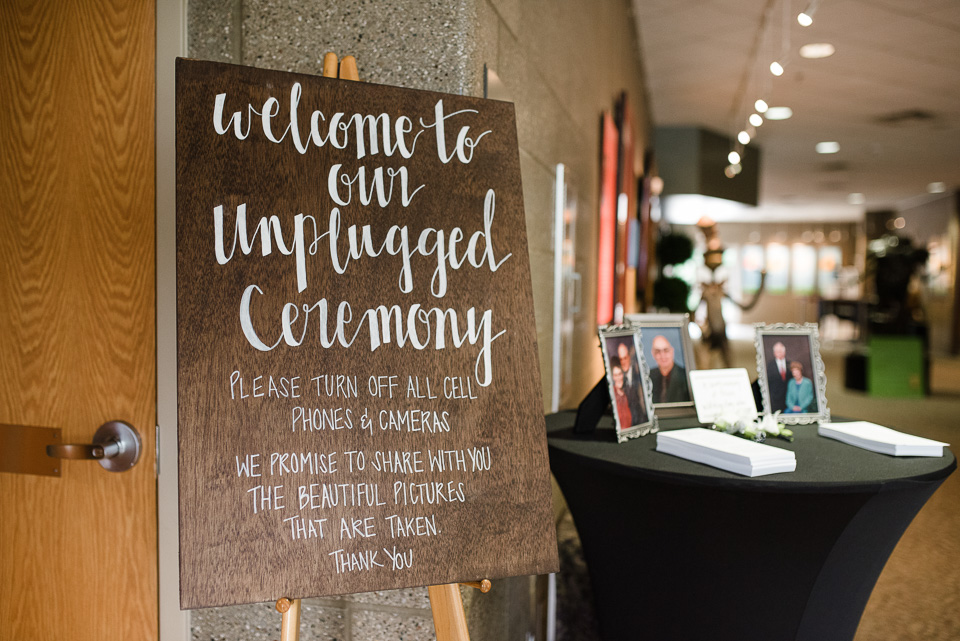 welcome to
our
Unplugged
Ceremony
PLEASE TURN OFF ALL CELL
PHONES & CAMERAS
WE PROMISE TO SHARE WITH YOU
THE BEAUTIFUL PICTURES
THAT ARE TAKEN.
THANK YOU